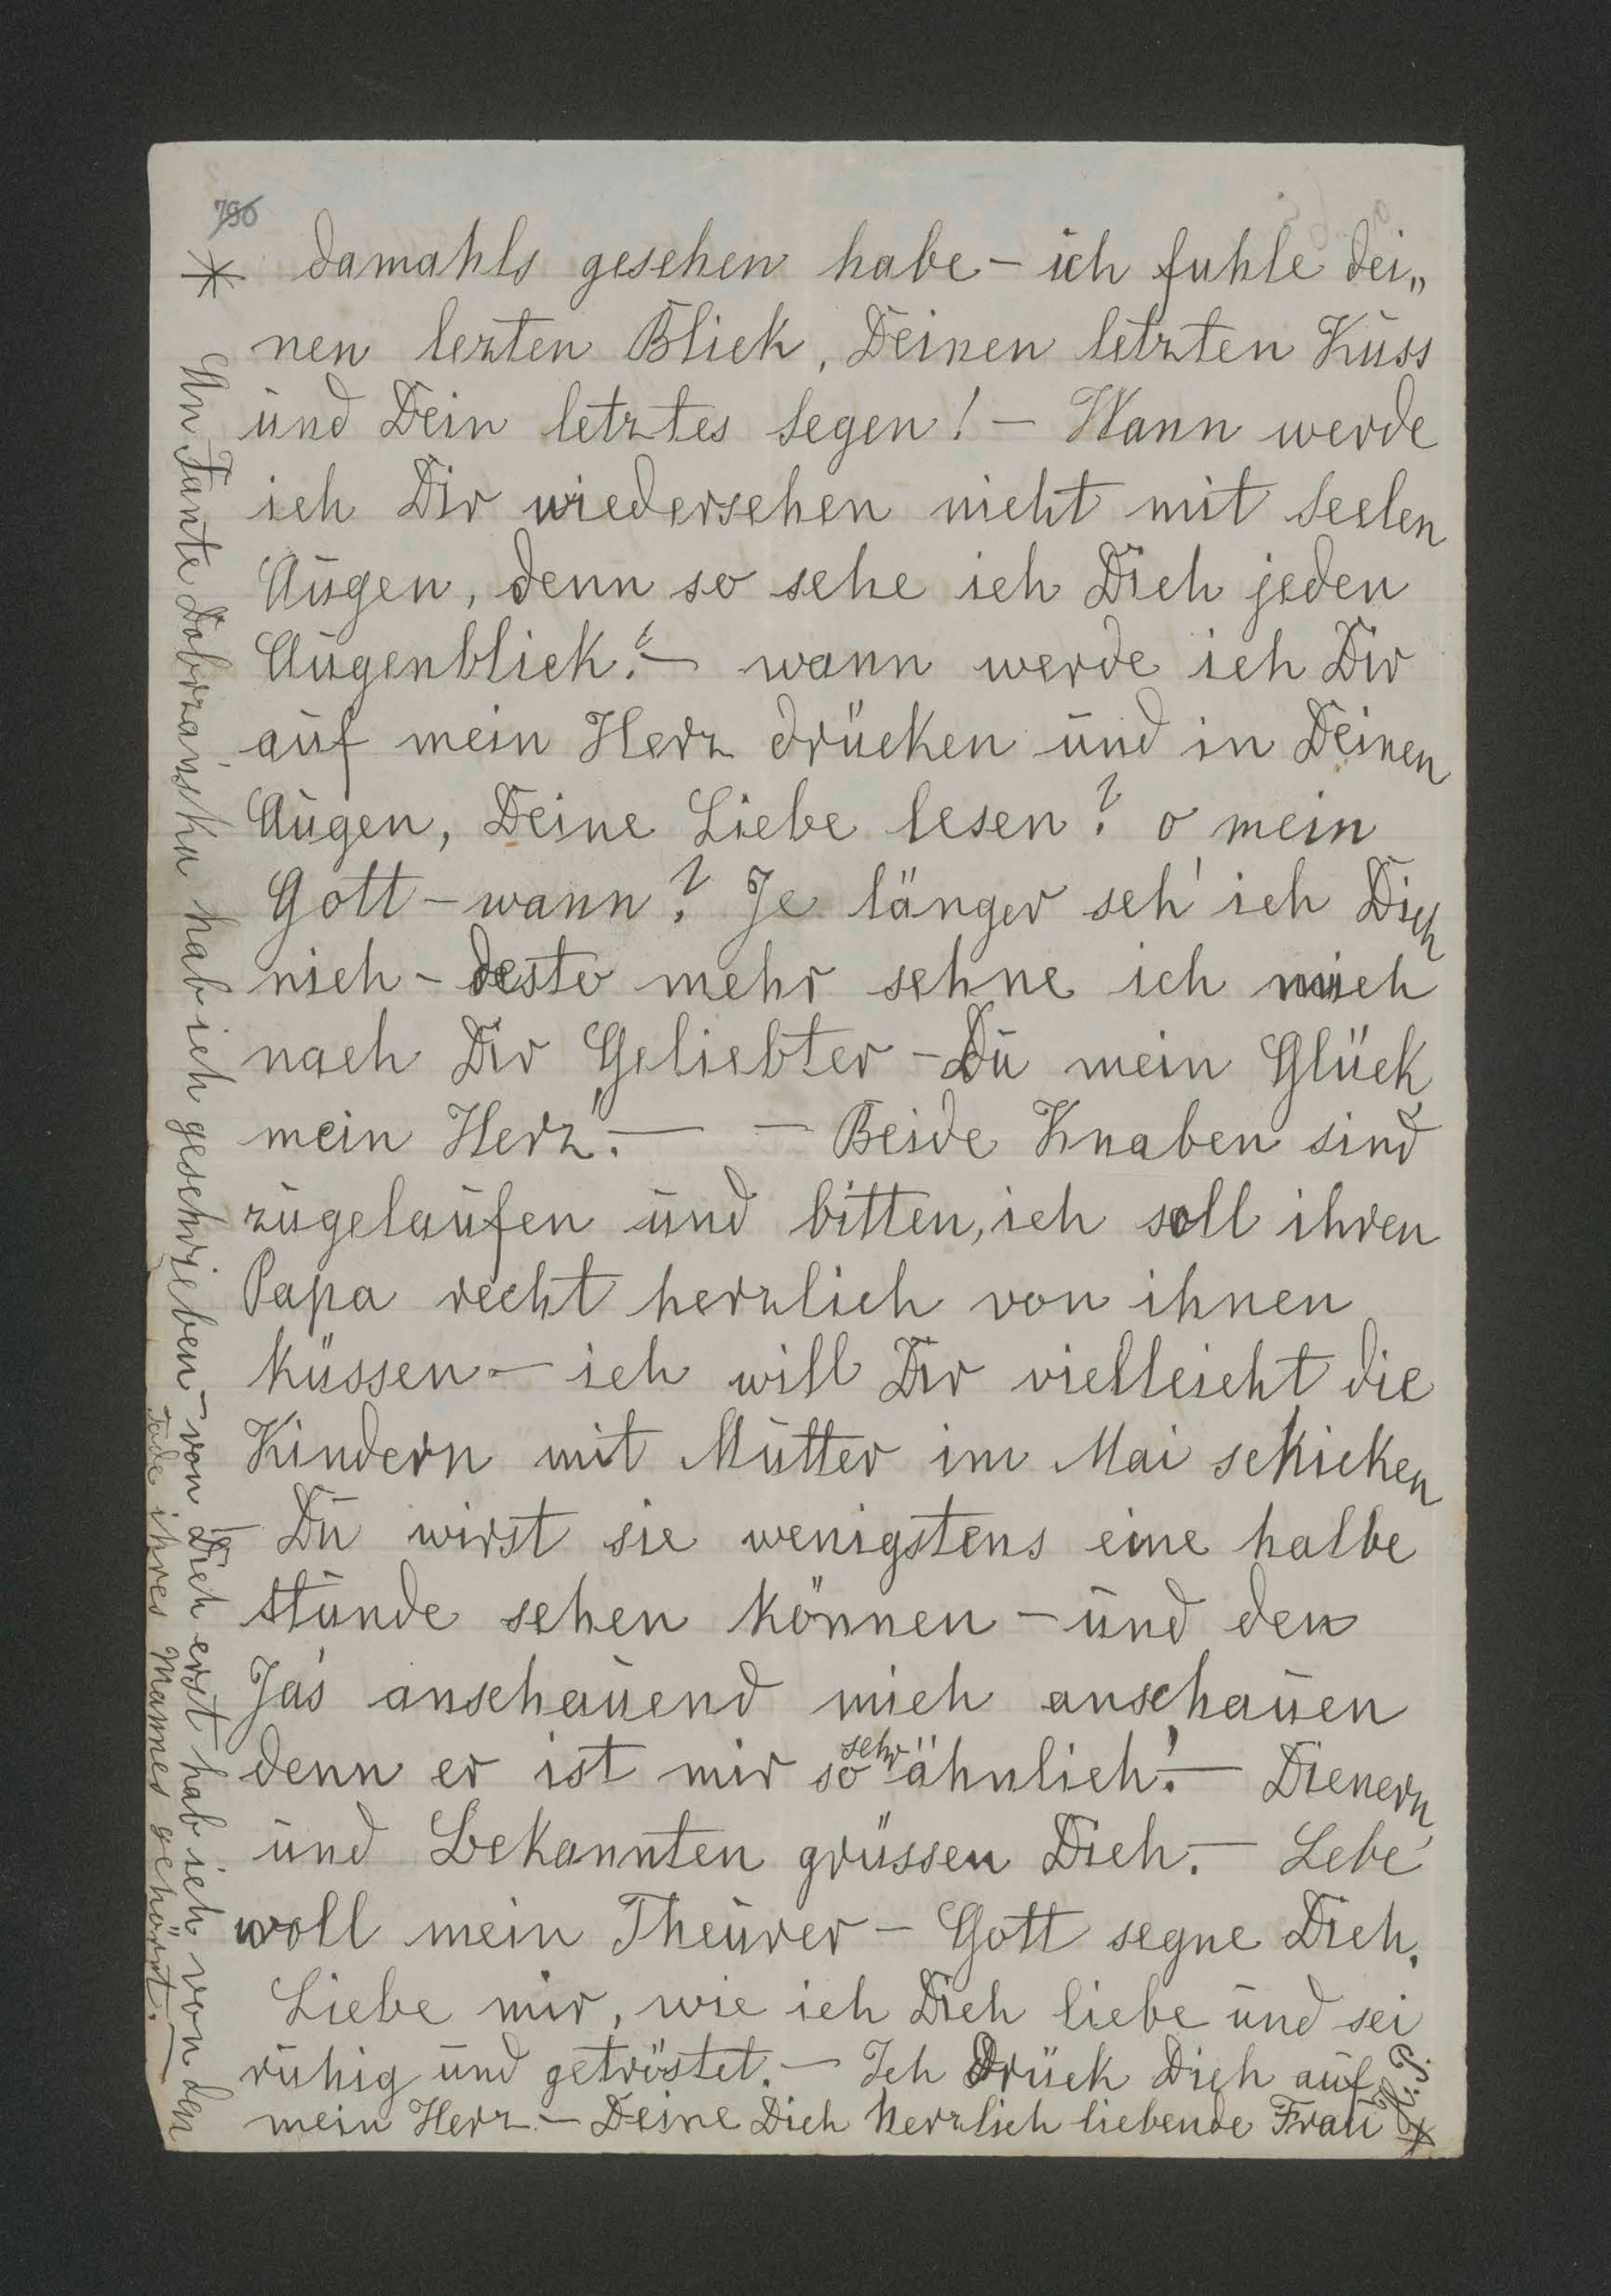 790
damahls gesehen habe – ich fuhle dei„
nen lezten Blick, Deinen letzten Kuss
und Dein letztes Segen! – Wann werde
ich Dir wiedersehen nicht mit Seelen
Augen, denn so sehe ich Dich jeden
Augenblick! – wann werde ich Dir
auf mein Herz drücken und in Deinen
Augen, Deine Liebe lesen? o mein
Gott – wann? Je länger seh' ich Dich
nich – desto mehr sehne ich mich
nach Dir Geliebter – Du mein Glück
mein Herz! – – Beide Knaben sind
zugelaufen und bitten, ich soll ihren
Papa recht herzlich von ihnen
küssen – ich will Dir vielleicht die
Kindern mit Mutter im Mai schicken
Du wirst sie wenigstens eine halbe
Stunde sehen können – und den
Jaś anschauend mich anschauen
denn er ist mir so sehr ähnlich! – Dienern
und Bekannten grüssen Dich. – Lebe
woll mein Theurer – Gott segne Dich.
Liebe mir, wie ich Dich liebe und sei
ruhig und getröstet. – Ich Drück Dich auf
mein Herz – Deine Dich herzlich liebende Frau
* An Tante Dobrzańska hab ich geschrieben – von Dich erst hab ich von den
Tode ihres Mannes gehört. –